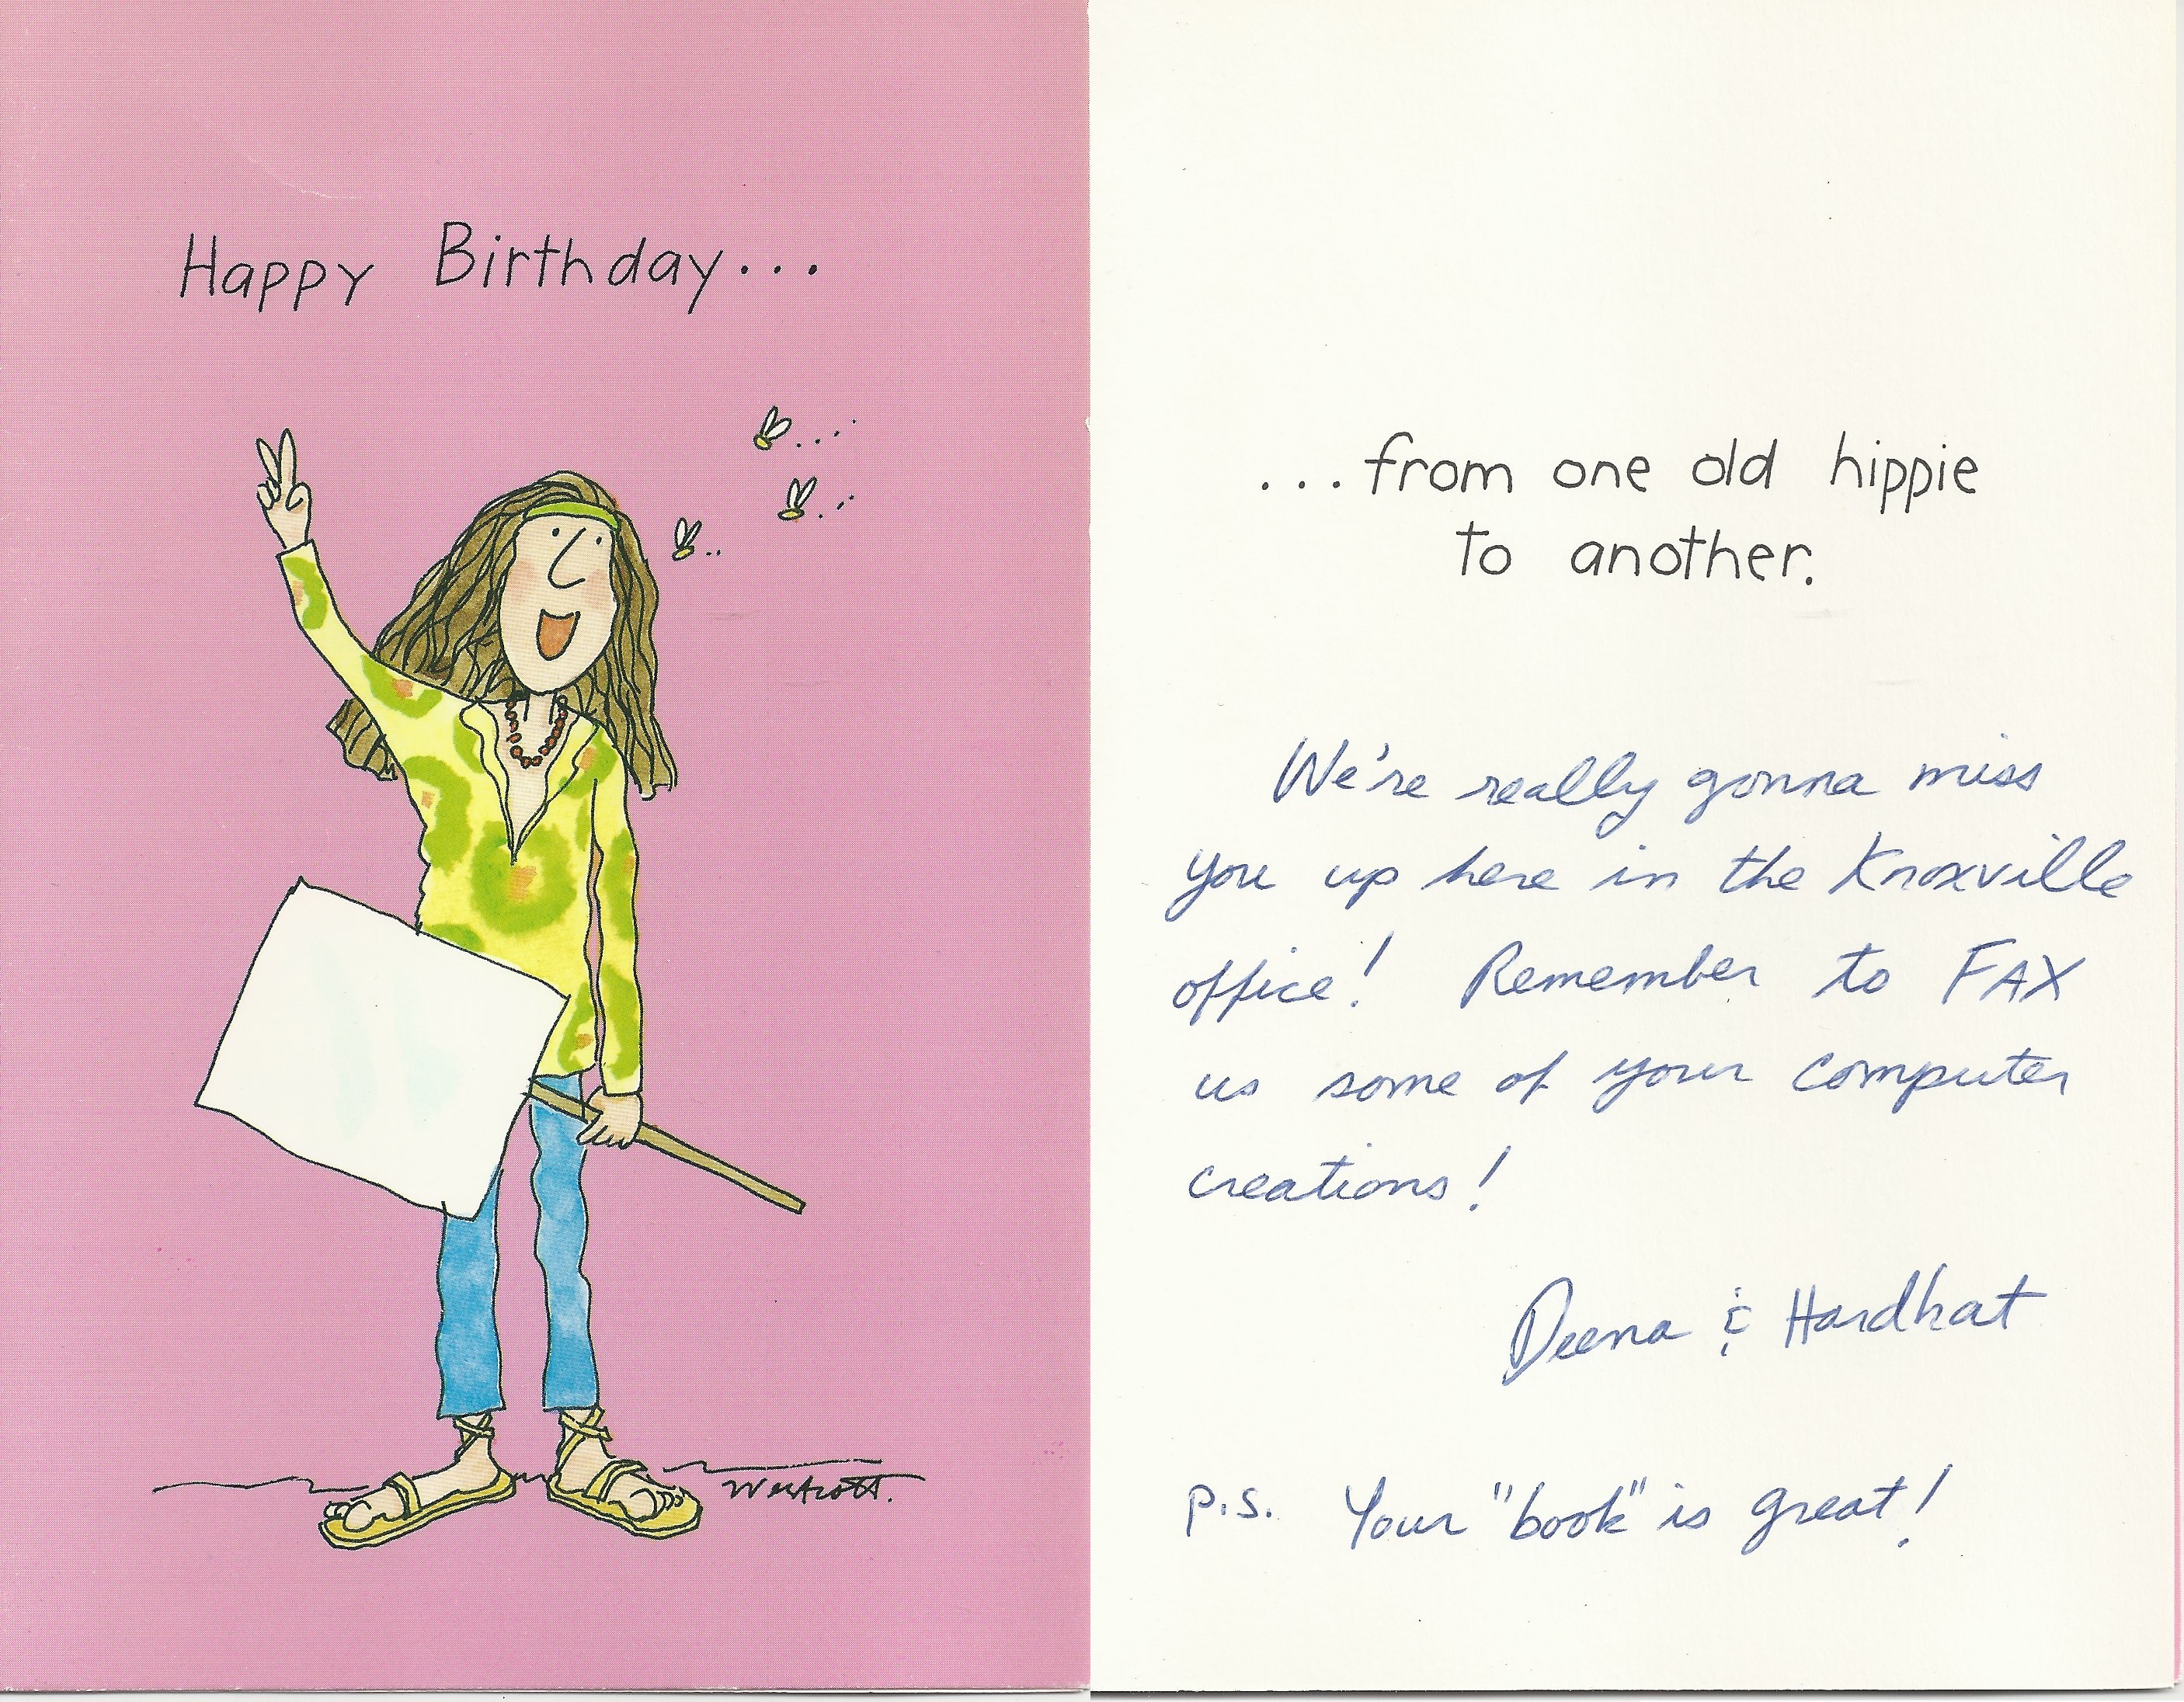 Happy Birthday...
Westcott.
...from one old hippie
to another.
We're really gonna miss
you up here in the Knoxville
office! Remember to FAX
us some of your computer
creations!
Deena & Hardhat
p.s. Your "book" is great!